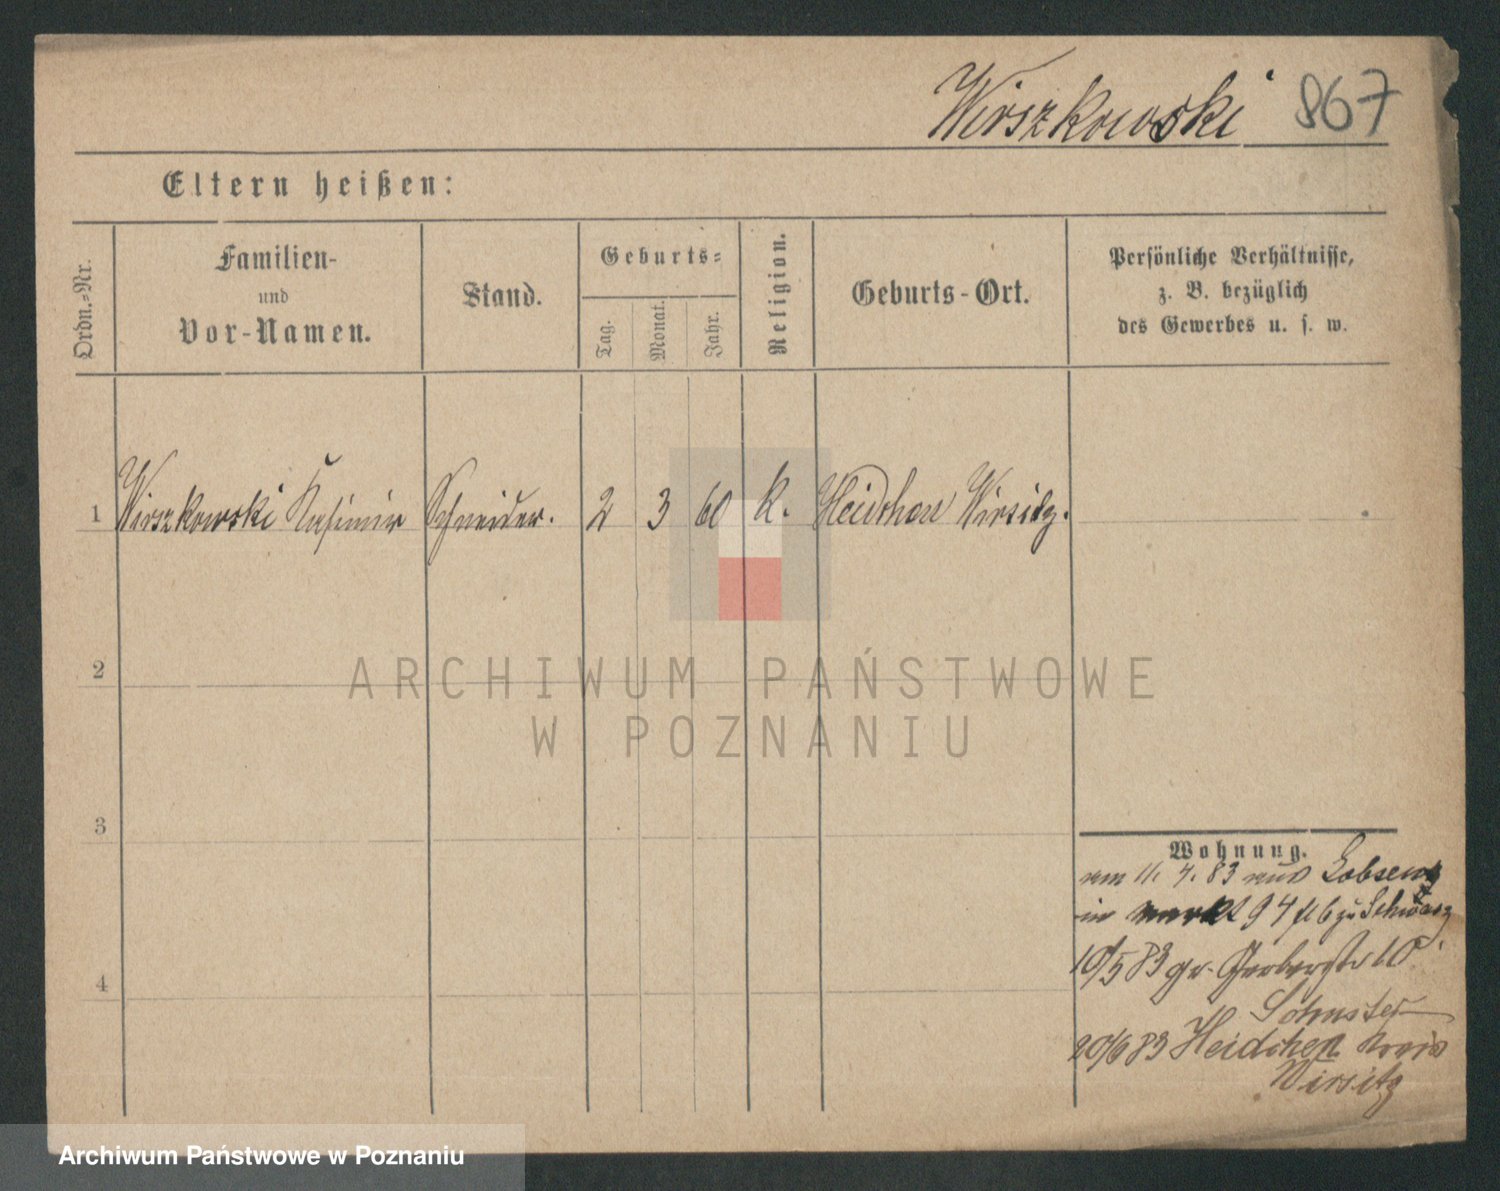 Wirszkowski 867
Eltern heißen:
Ordn.-Nr.
Familien-
und
Vor-Namen.
Stand.
Geburts-
Tag.
Monat.
Jahr.
Religion.
Geburts-Ort.
Persönliche Verhältnisse,
z. B. bezüglich
des Gewerbes u. s. w.
1 Wirszkowski Kasimir Schneider. 2 3 60 K. Heidchen Wirsitz.
2
3
4
ARCHIWUM PAŃSTWOWE
W POZNANIU
Wohnung.
am 11. 4. 83 aus Lobsenz
in Markt 94 II b zu
10/5 83 gr. Gerberstr 10
20/6 83 Heidchen Kreis
Wirsitz
Archiwum Państwowe w Poznaniu